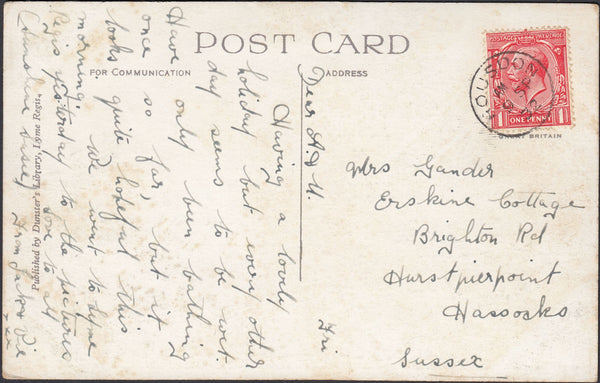 POST CARD
FOR COMMUNICATION
ADDRESS
Dear A & U.
Fri
Having a lovely
holiday but every other
day seems to be wet.
Have only been bathing
once so far, but it
looks quite hopeful this
morning. We went to Lyme
Regis yesterday to the pictures
(Sunshine Susie)
Love to all
from
xxx
Published by Dunster's Library, Lyme Regis.
POSTAGE
REVENUE
ONE PENNY
1
1
ROUSDON
GREAT BRITAIN
Mrs Gander
Erskine Cottage
Brighton Rd
Hurstpierpoint
Hassocks
Sussex